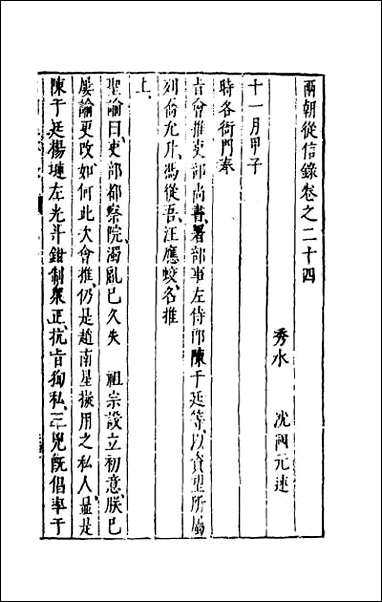 兩朝從信錄卷之二十四
秀水 沈國元述
十一月甲子
時各衙門奉
旨會推吏部尚書署部事左侍郎陳于廷等以資望所屬
列喬允升馮從吾汪應蛟名推
上
聖諭曰吏部都察院濁亂已久失 祖宗設立初意朕已
屢諭更改如何此次會推仍是趙南星擬用之私人顯是
陳于廷楊漣左光斗鉗制眾正抗旨徇私三兇旣倡率于